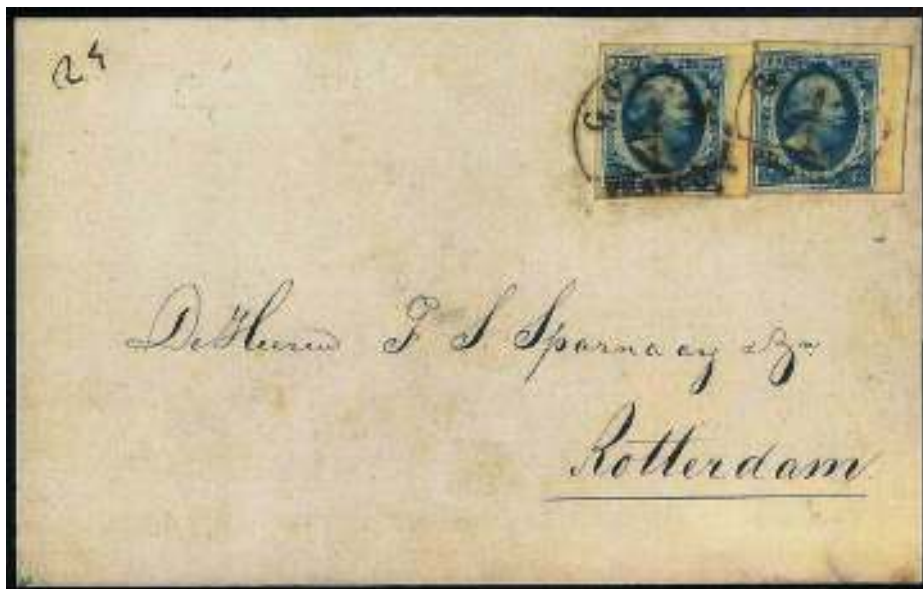 24
De Heeren P S Sparnaay & Zn
Rotterdam